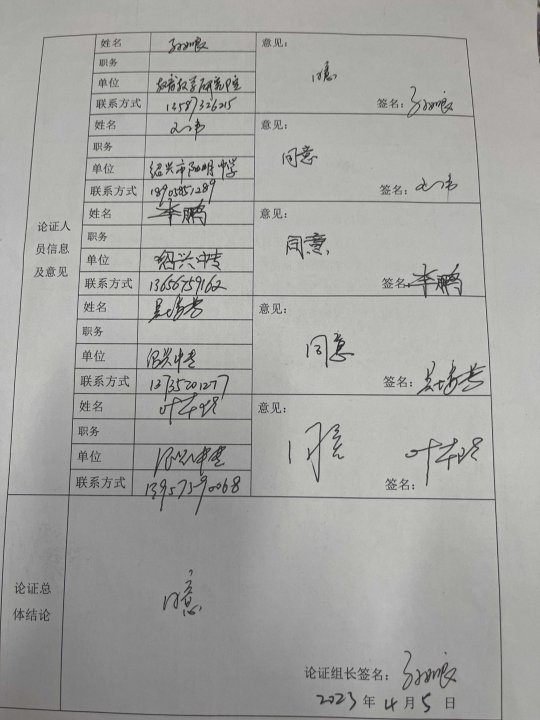 姓名
意见：
职务
同意
单位 教育教学研究室
签名：
联系方式 13587326215
姓名
意见：
职务
同意
单位 绍兴市阳明中学
签名：
联系方式 13905851289
论证人
员信息
及意见
姓名 李鹏
意见：
职务
同意
单位 绍兴中专
签名：李鹏
联系方式 13656759162
姓名
意见：
职务
同意
单位 绍兴中专
签名：
联系方式 13735201277
姓名
意见：
职务
同意
单位 绍兴中专
签名：
联系方式 13957590068
论证总
体结论
同意
论证组长签名：
2023 年 4 月 5 日